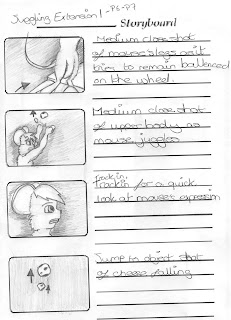 Juggling Extension 1 - P6-P7
Storyboard
Medium close shot
of mouse's legs as it
tries to remain ballenced
on the wheel.
Medium close-shot
of upper body as
mouse juggles
track in
Track in for a quick
look at mouse's expression
Jump to object shot
of cheese falling